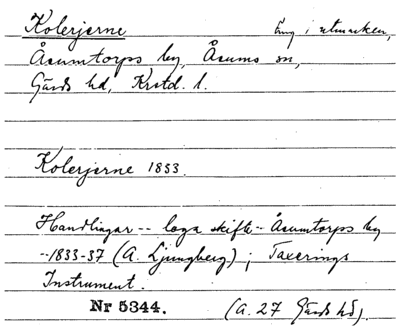 Kolerjerne Äng i utmarken,
Åsumtorps by, Åsums sn,
Gärds hd, Krstd. l.
Kolerjerne 1833.
Handlingar -- laga skifte - Åsumtorps by
- 1833-37 (A. Ljungberg); Taxerings
Instrument.
Nr 5344. (A. 27 Gärds hd).